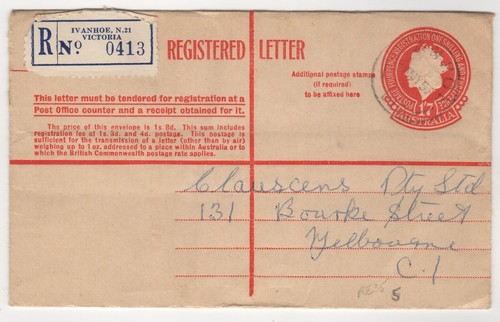 IVANHOE, N.21
VICTORIA
R No 0413
REGISTERED LETTER
Additional postage stamps
(if required)
to be affixed here
1'7
AUSTRALIA
This letter must be tendered for registration at a
Post Office counter and a receipt obtained for it.
The price of this envelope is 1s. 8d. This sum includes
registration fee of 1s. 3d. and 4d. postage. This postage is
sufficient for the transmission of a letter (other than by air)
weighing up to 1 oz. addressed to a place within Australia or to
which the British Commonwealth postage rate applies.
Clauscens Pty Ltd
131 Bourke Street
Melbourne
C.1
5